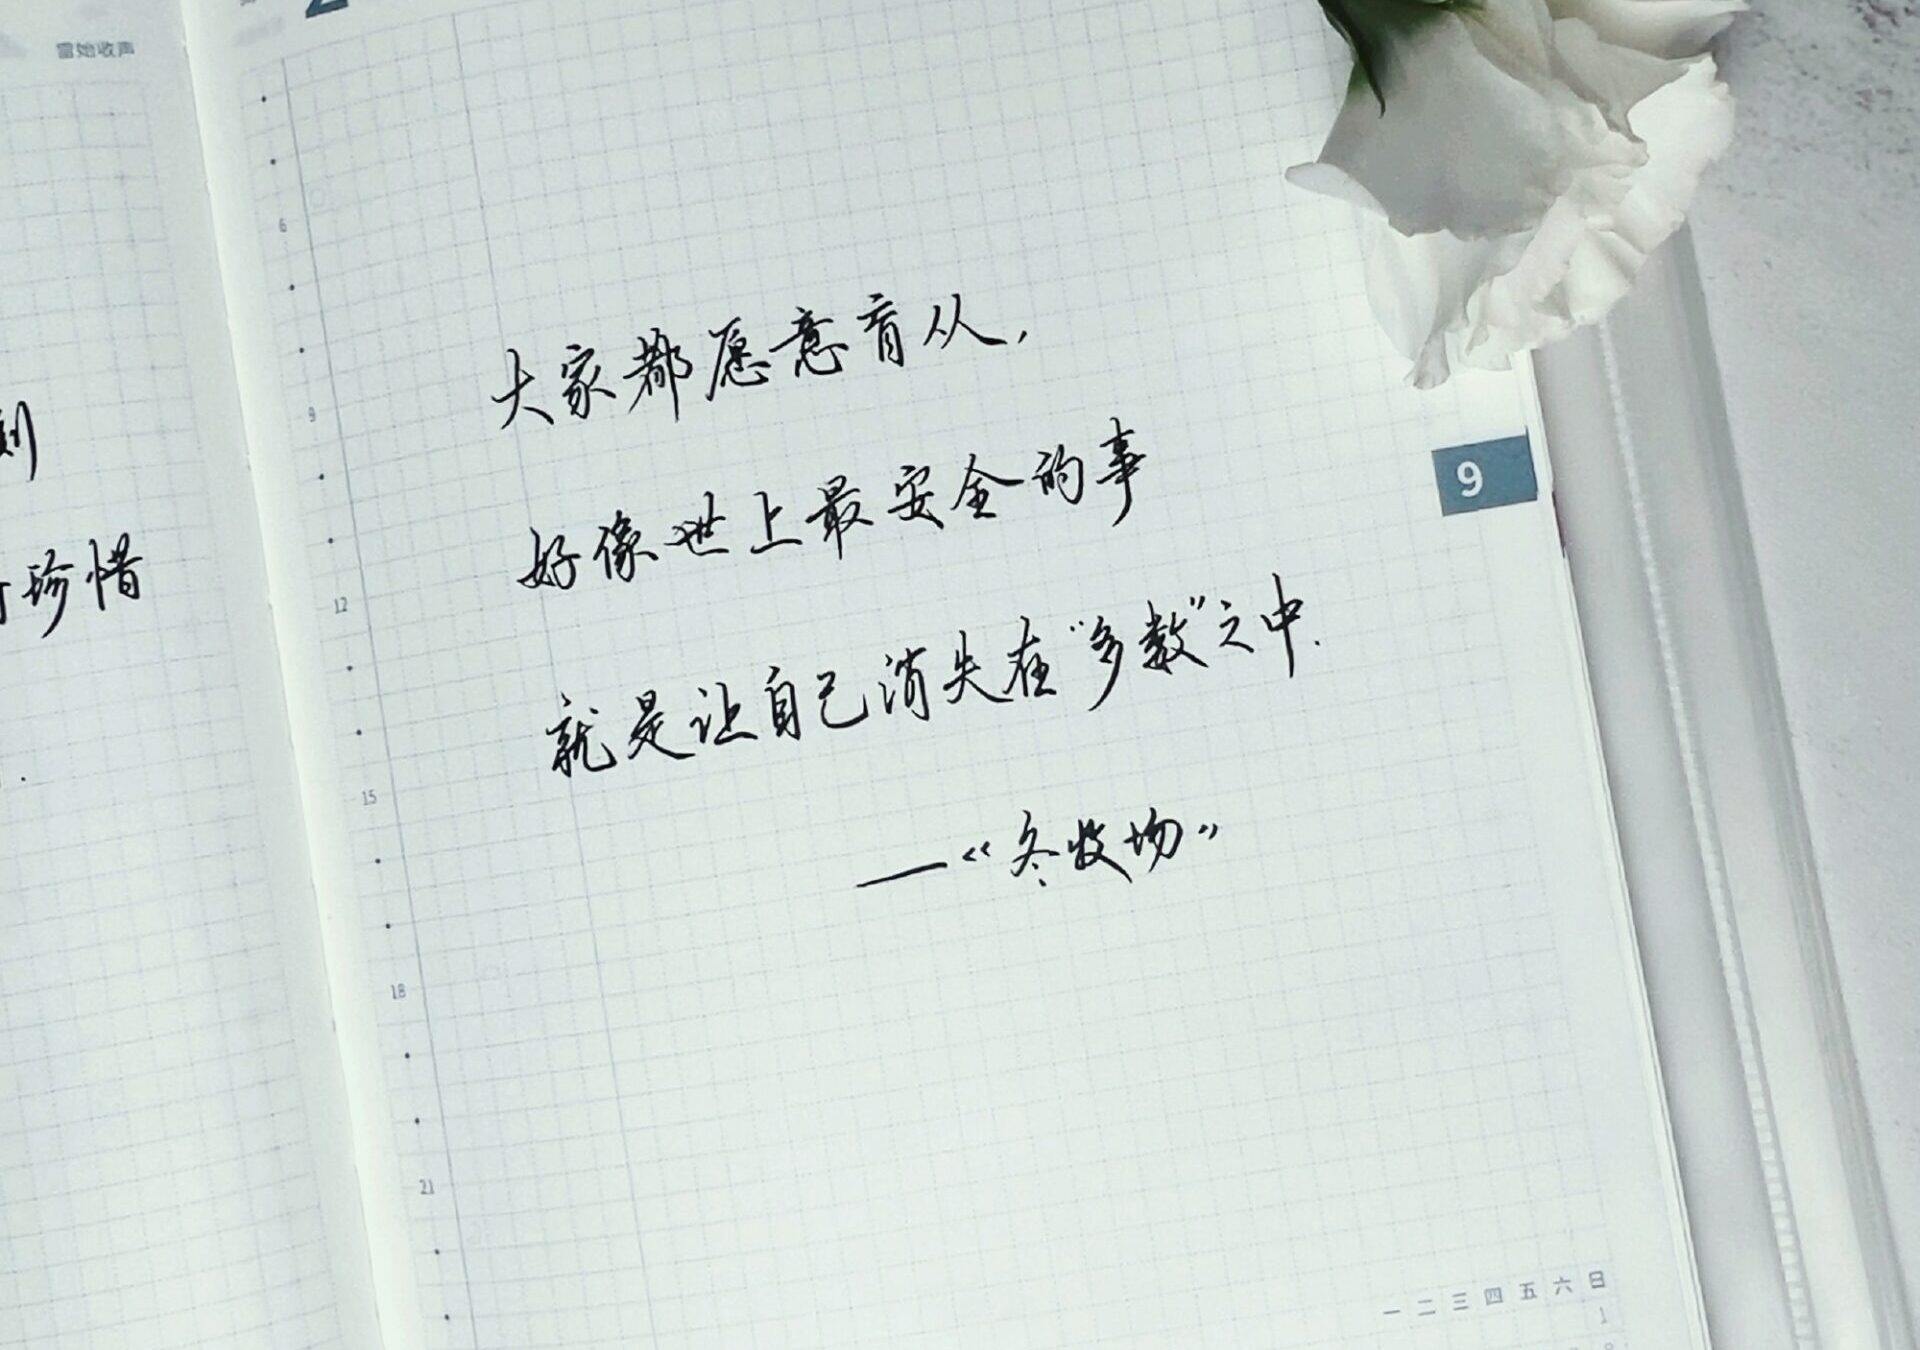 雷始收声
刻
珍惜
6
9
12
15
18
21
大家都愿意盲从,
好像世上最安全的事
就是让自己消失在“多数”之中.
——《冬牧场》
9
一 二 三 四 五 六 日
1